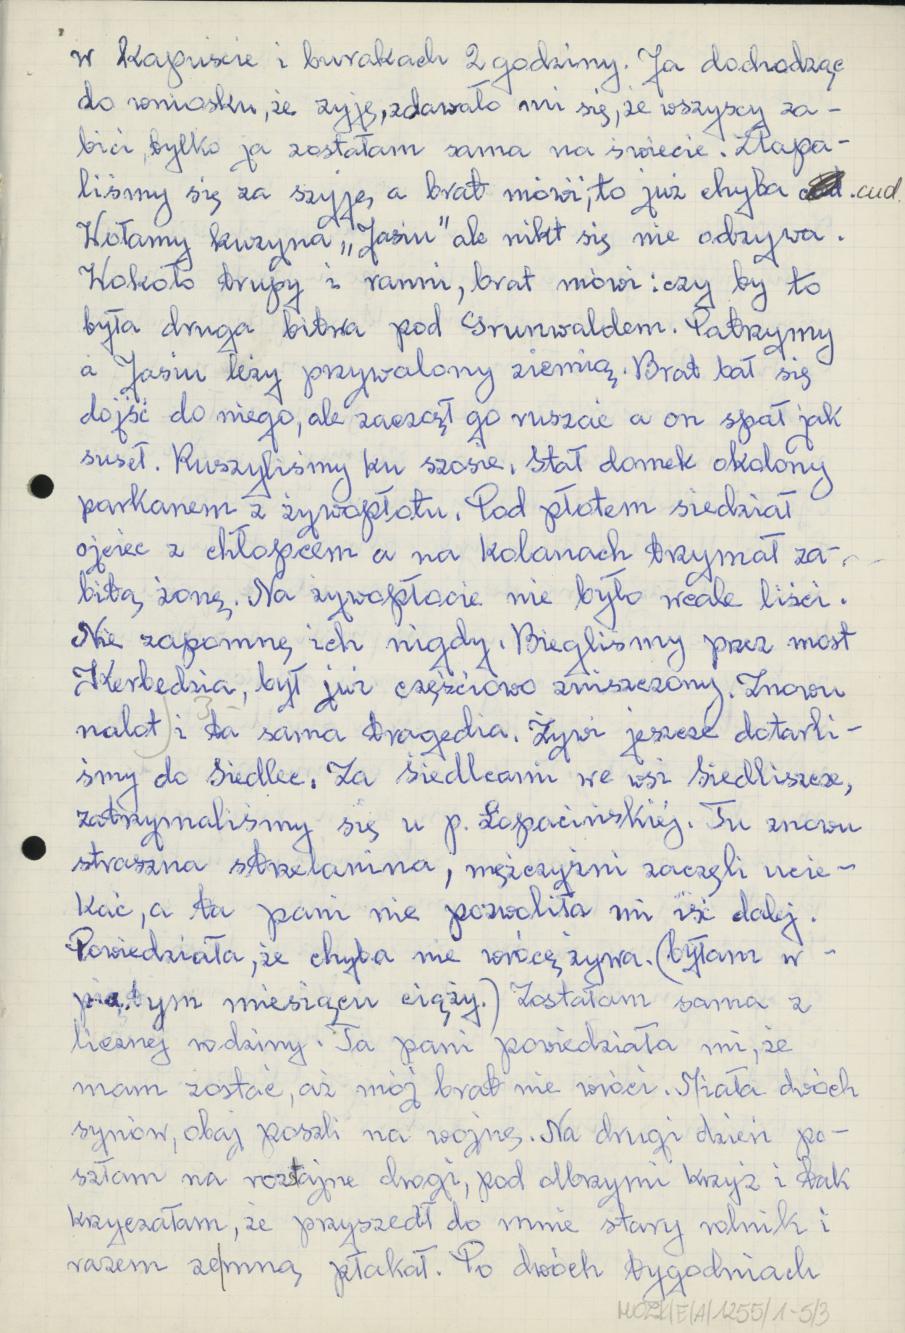 w kapuście i burakach 2 godziny. Ja dochodząc
do wniosku, że żyję, zdawało mi się, że wszyscy za-
bici, tylko ja zostałam sama na świecie. Złapa-
liśmy się za szyję, a brat mówi; to już chyba cud.
Wołamy kuzyna „Jasiu" ale nikt się nie odzywa.
Wokoło trupy i ranni, brat mówi: czy by to
była druga bitwa pod Grunwaldem. Patrzymy
a Jasiu leży przywalony ziemią. Brat bał się
dojść do niego, ale zaczął go ruszać a on spał jak
suseł. Ruszyliśmy ku szosie. Stał domek okolony
parkanem z żywopłotu. Pod płotem siedział
ojciec z chłopcem a na kolanach trzymał za-
bitą żonę. Na żywopłocie nie było wcale liści.
Nie zapomnę ich nigdy. Biegliśmy przez most
Kierbedzia, był już częściowo zniszczony. Znowu
nalot i ta sama tragedia. Żywi jeszcze dotarli-
śmy do Siedlec. Za Siedlcami we wsi Siedliszcze,
zatrzymaliśmy się u p. Łopacińskiéj. Tu znowu
straszna strzelanina, mężczyźni zaczęli ucie-
kać, a ta pani nie pozwoliła mi iść dalej.
Powiedziała, że chyba nie wrócę żywa. (byłam w -
piątym miesiącu ciąży.) Zostałam sama z
licznej rodziny. Ta pani powiedziała mi, że
mam zostać, aż mój brat nie wróci. Miała dwóch
synów, obaj poszli na wojnę. Na drugi dzień po-
szłam na roztajne drogi, pod olbrzymi krzyż i tak
krzyczałam, że przyszedł do mnie stary rolnik i
razem ze|mną płakał. Po dwóch tygodniach
MOZK/E/A/1255/1-5/3